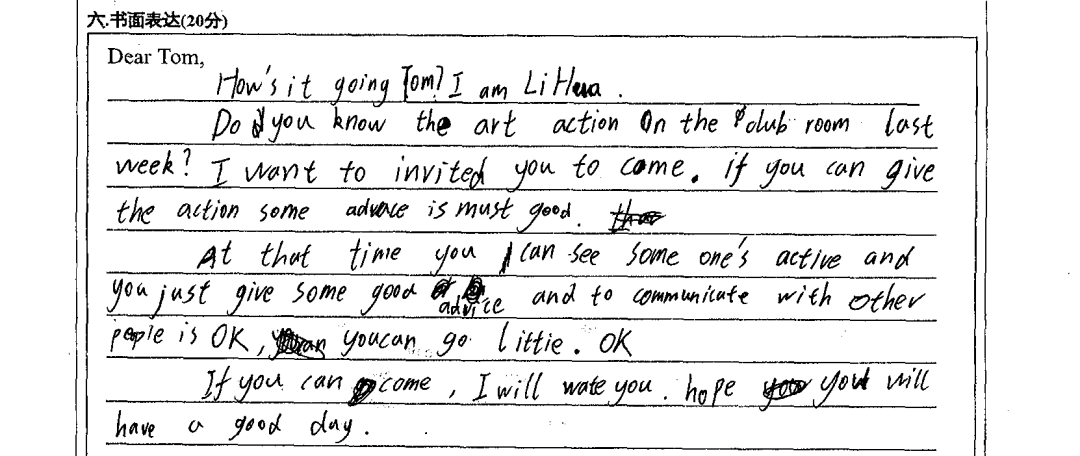 六.书面表达(20分)
Dear Tom,
How's it going Tom? I am Li Hua.
Do you know the art action On the club room last
week? I want to invited you to come. if you can give
the action some advace is must good.
At that time you can see some one's active and
you just give some good advice and to communicate with other
people is OK, youcan go littie. OK
If you can come, I will wate you. hope you will
have a good day.